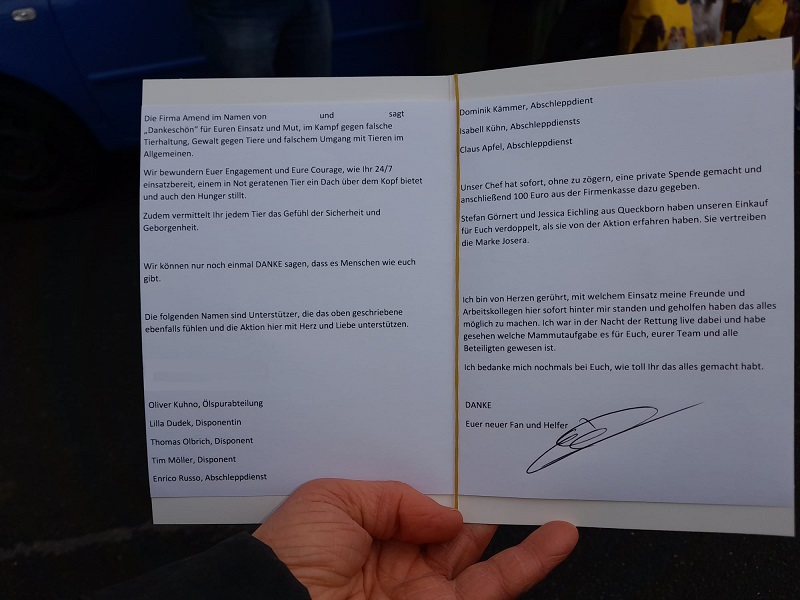 Die Firma Amend im Namen von und sagt
„Dankeschön“ für Euren Einsatz und Mut, im Kampf gegen falsche
Tierhaltung, Gewalt gegen Tiere und falschem Umgang mit Tieren im
Allgemeinen.
Wir bewundern Euer Engagement und Eure Courage, wie Ihr 24/7
einsatzbereit, einem in Not geratenen Tier ein Dach über dem Kopf bietet
und auch den Hunger stillt.
Zudem vermittelt Ihr jedem Tier das Gefühl der Sicherheit und
Geborgenheit.
Wir können nur noch einmal DANKE sagen, dass es Menschen wie euch
gibt.
Die folgenden Namen sind Unterstützer, die das oben geschriebene
ebenfalls fühlen und die Aktion hier mit Herz und Liebe unterstützen.
Oliver Kuhno, Ölspurabteilung
Lilla Dudek, Disponentin
Thomas Olbrich, Disponent
Tim Möller, Disponent
Enrico Russo, Abschleppdienst
Dominik Kämmer, Abschleppdient
Isabell Kühn, Abschleppdiensts
Claus Apfel, Abschleppdienst
Unser Chef hat sofort, ohne zu zögern, eine private Spende gemacht und
anschließend 100 Euro aus der Firmenkasse dazu gegeben.
Stefan Görnert und Jessica Eichling aus Queckborn haben unseren Einkauf
für Euch verdoppelt, als sie von der Aktion erfahren haben. Sie vertreiben
die Marke Josera.
Ich bin von Herzen gerührt, mit welchem Einsatz meine Freunde und
Arbeitskollegen hier sofort hinter mir standen und geholfen haben das alles
möglich zu machen. Ich war in der Nacht der Rettung live dabei und habe
gesehen welche Mammutaufgabe es für Euch, eurer Team und alle
Beteiligten gewesen ist.
Ich bedanke mich nochmals bei Euch, wie toll Ihr das alles gemacht habt.
DANKE
Euer neuer Fan und Helfer